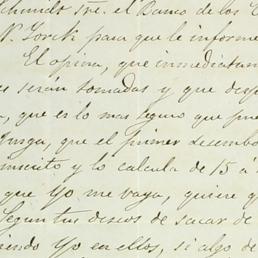 chando Sre. el Banco de los E
N. York para que le informe
El opina, que inmediatam
es serán tomadas y que desp
a, que es lo mas seguro que pue
unga, que el primer desembo
inscrito y lo calcula de 15 á
que Yo me vaya, quiere q
Segun tus deseos de sacar de
iendo Yo en ellos, si algo de